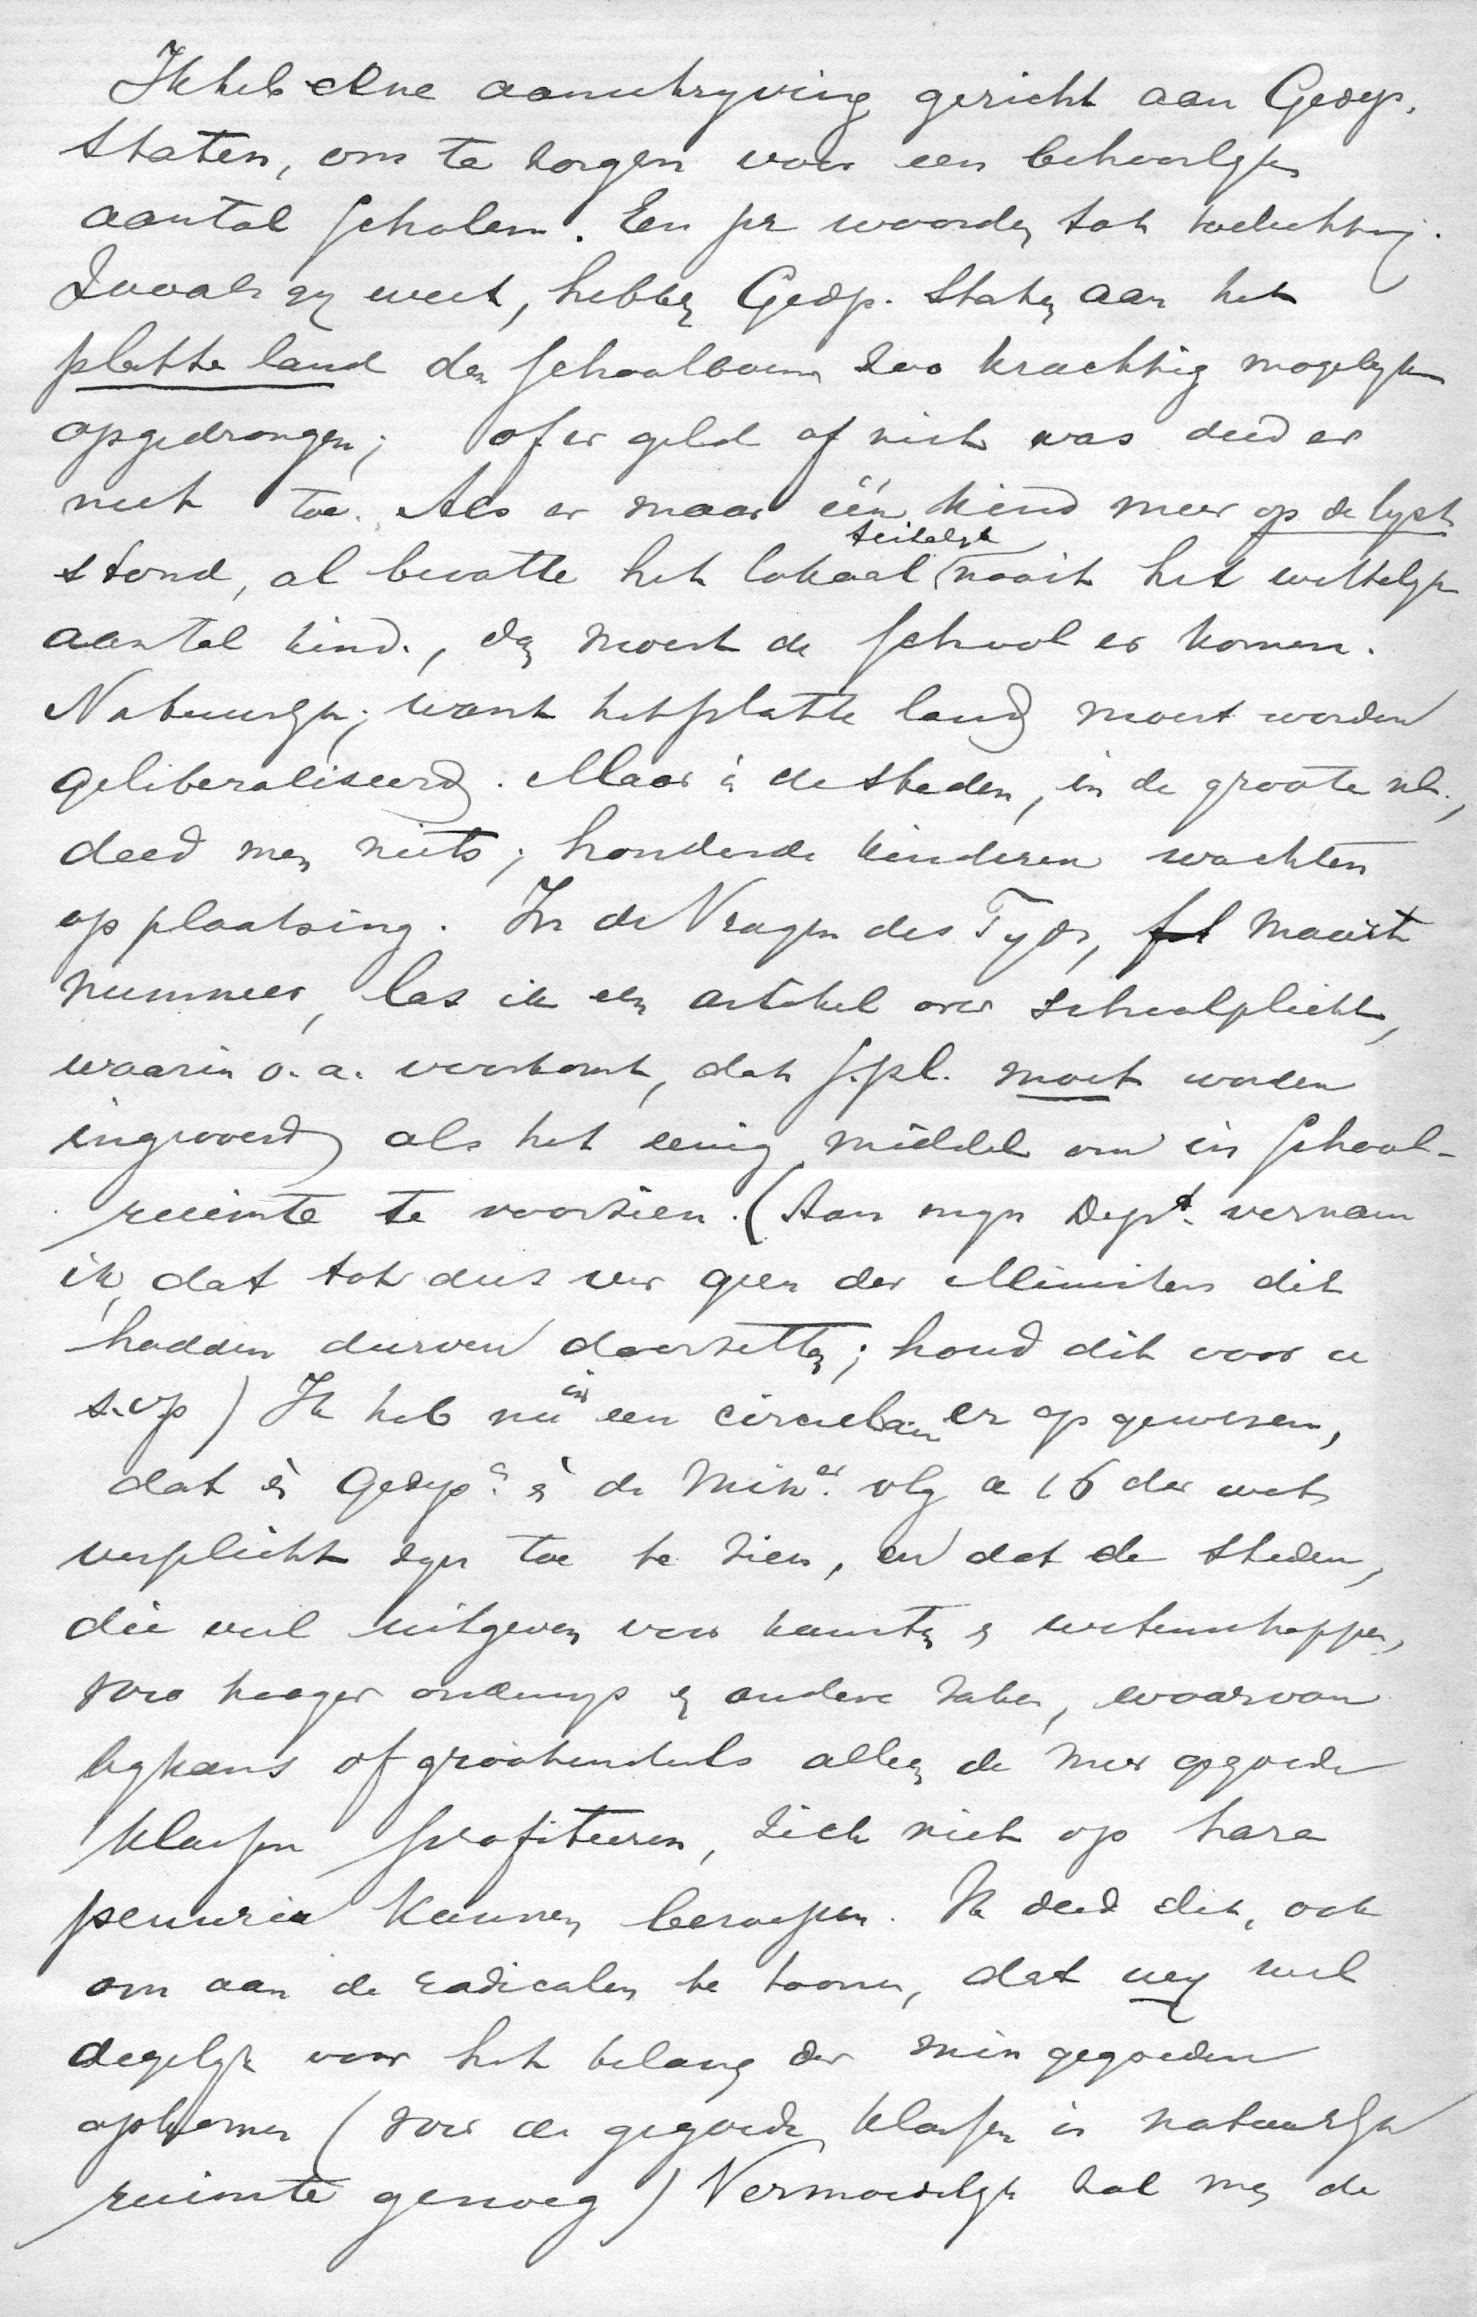 Ik heb eene aanschrijving gericht aan Gedep.
Staten, om te zorgen voor een behoorlijk
aantal scholen. Een pr woorden tot toelichting.
Zooals gij weet, hebben Gedp. Staten aan het
platte land den schoolbouw zoo krachtig mogelijk
opgedrongen; of er geld of niet was deed er
niet toe. Als er maar één kind meer op de lijst
stond, al bevatte het lokaal feitelijk nooit het wettelijk
aantal kind., dan moest de school er komen.
Natuurlijk; want het platte land moest worden
geliberaliseerd. Maar in de steden, in de groote nl.,
deed men niets; honderde kinderen wachten
op plaatsing. In de Vragen des Tijds, Maart
nummer, las ik een artikel over schoolplicht,
waarin o.a. voorkomt, dat s.pl. moet worden
ingevoerd als het eenig middel om in school-
ruimte te voorzien. (Aan mijn Dept. vernam
ik, dat tot dus ver geen der Ministers dit
hadden durven doorzetten; houd dit voor u
s.v.p) Ik heb nu in een circulaire er op gewezen,
dat èn Gedepn. èn de Miner. vlg a 16 der wet
verplicht zijn toe te zien, en dat de steden,
die veel uitgeven voor kunsten en wetenschappen,
voor hooger onderwijs en andere zaken, waarvan
bijkans of grootendeels alleen de meer gegoede
klassen profiteeren, zich niet op hare
penurie kunnen beroepen. Ik deed dit, ook
om aan de radicalen te toonen, dat wij wel
degelijk voor het belang der min gegoeden
opkomen (voor de gegoede klassen is natuurlijk
ruimte genoeg) Vermoedelijk zal men de